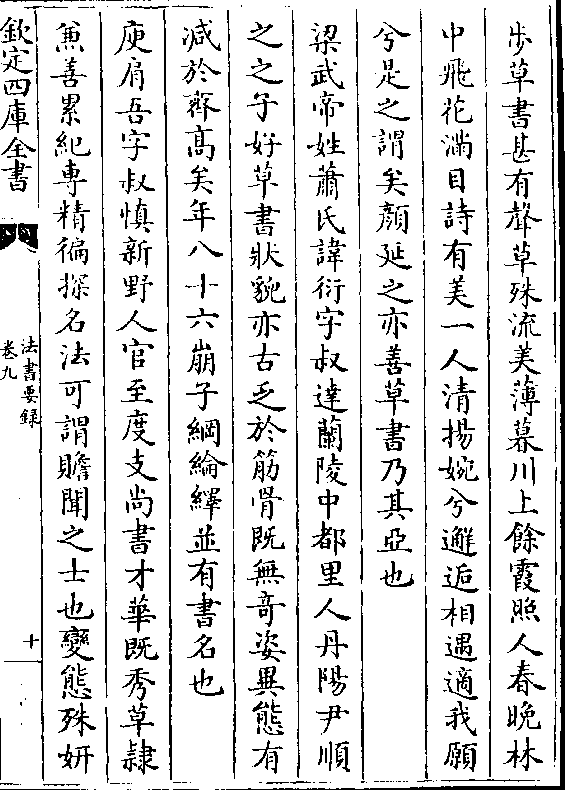 步草書甚有聲草殊流美薄暮川上餘霞照人春晚林
中飛花滿目詩有美一人清揚婉兮邂逅相遇適我願
兮是之謂矣顔延之亦善草書乃其亞也
梁武帝姓蕭氏諱衍字叔達蘭陵中都里人丹陽尹順
之之子好草書狀貌亦古乏於筋骨既無奇姿異態有
減於齊髙矣年八十六崩子綱綸繹並有書名也
庾肩吾字叔慎新野人官至度支尚書才華既秀草隷
兼善累紀專精徧探名法可謂贍聞之士也變態殊妍
欽定四庫全書
法書要録
卷九
十